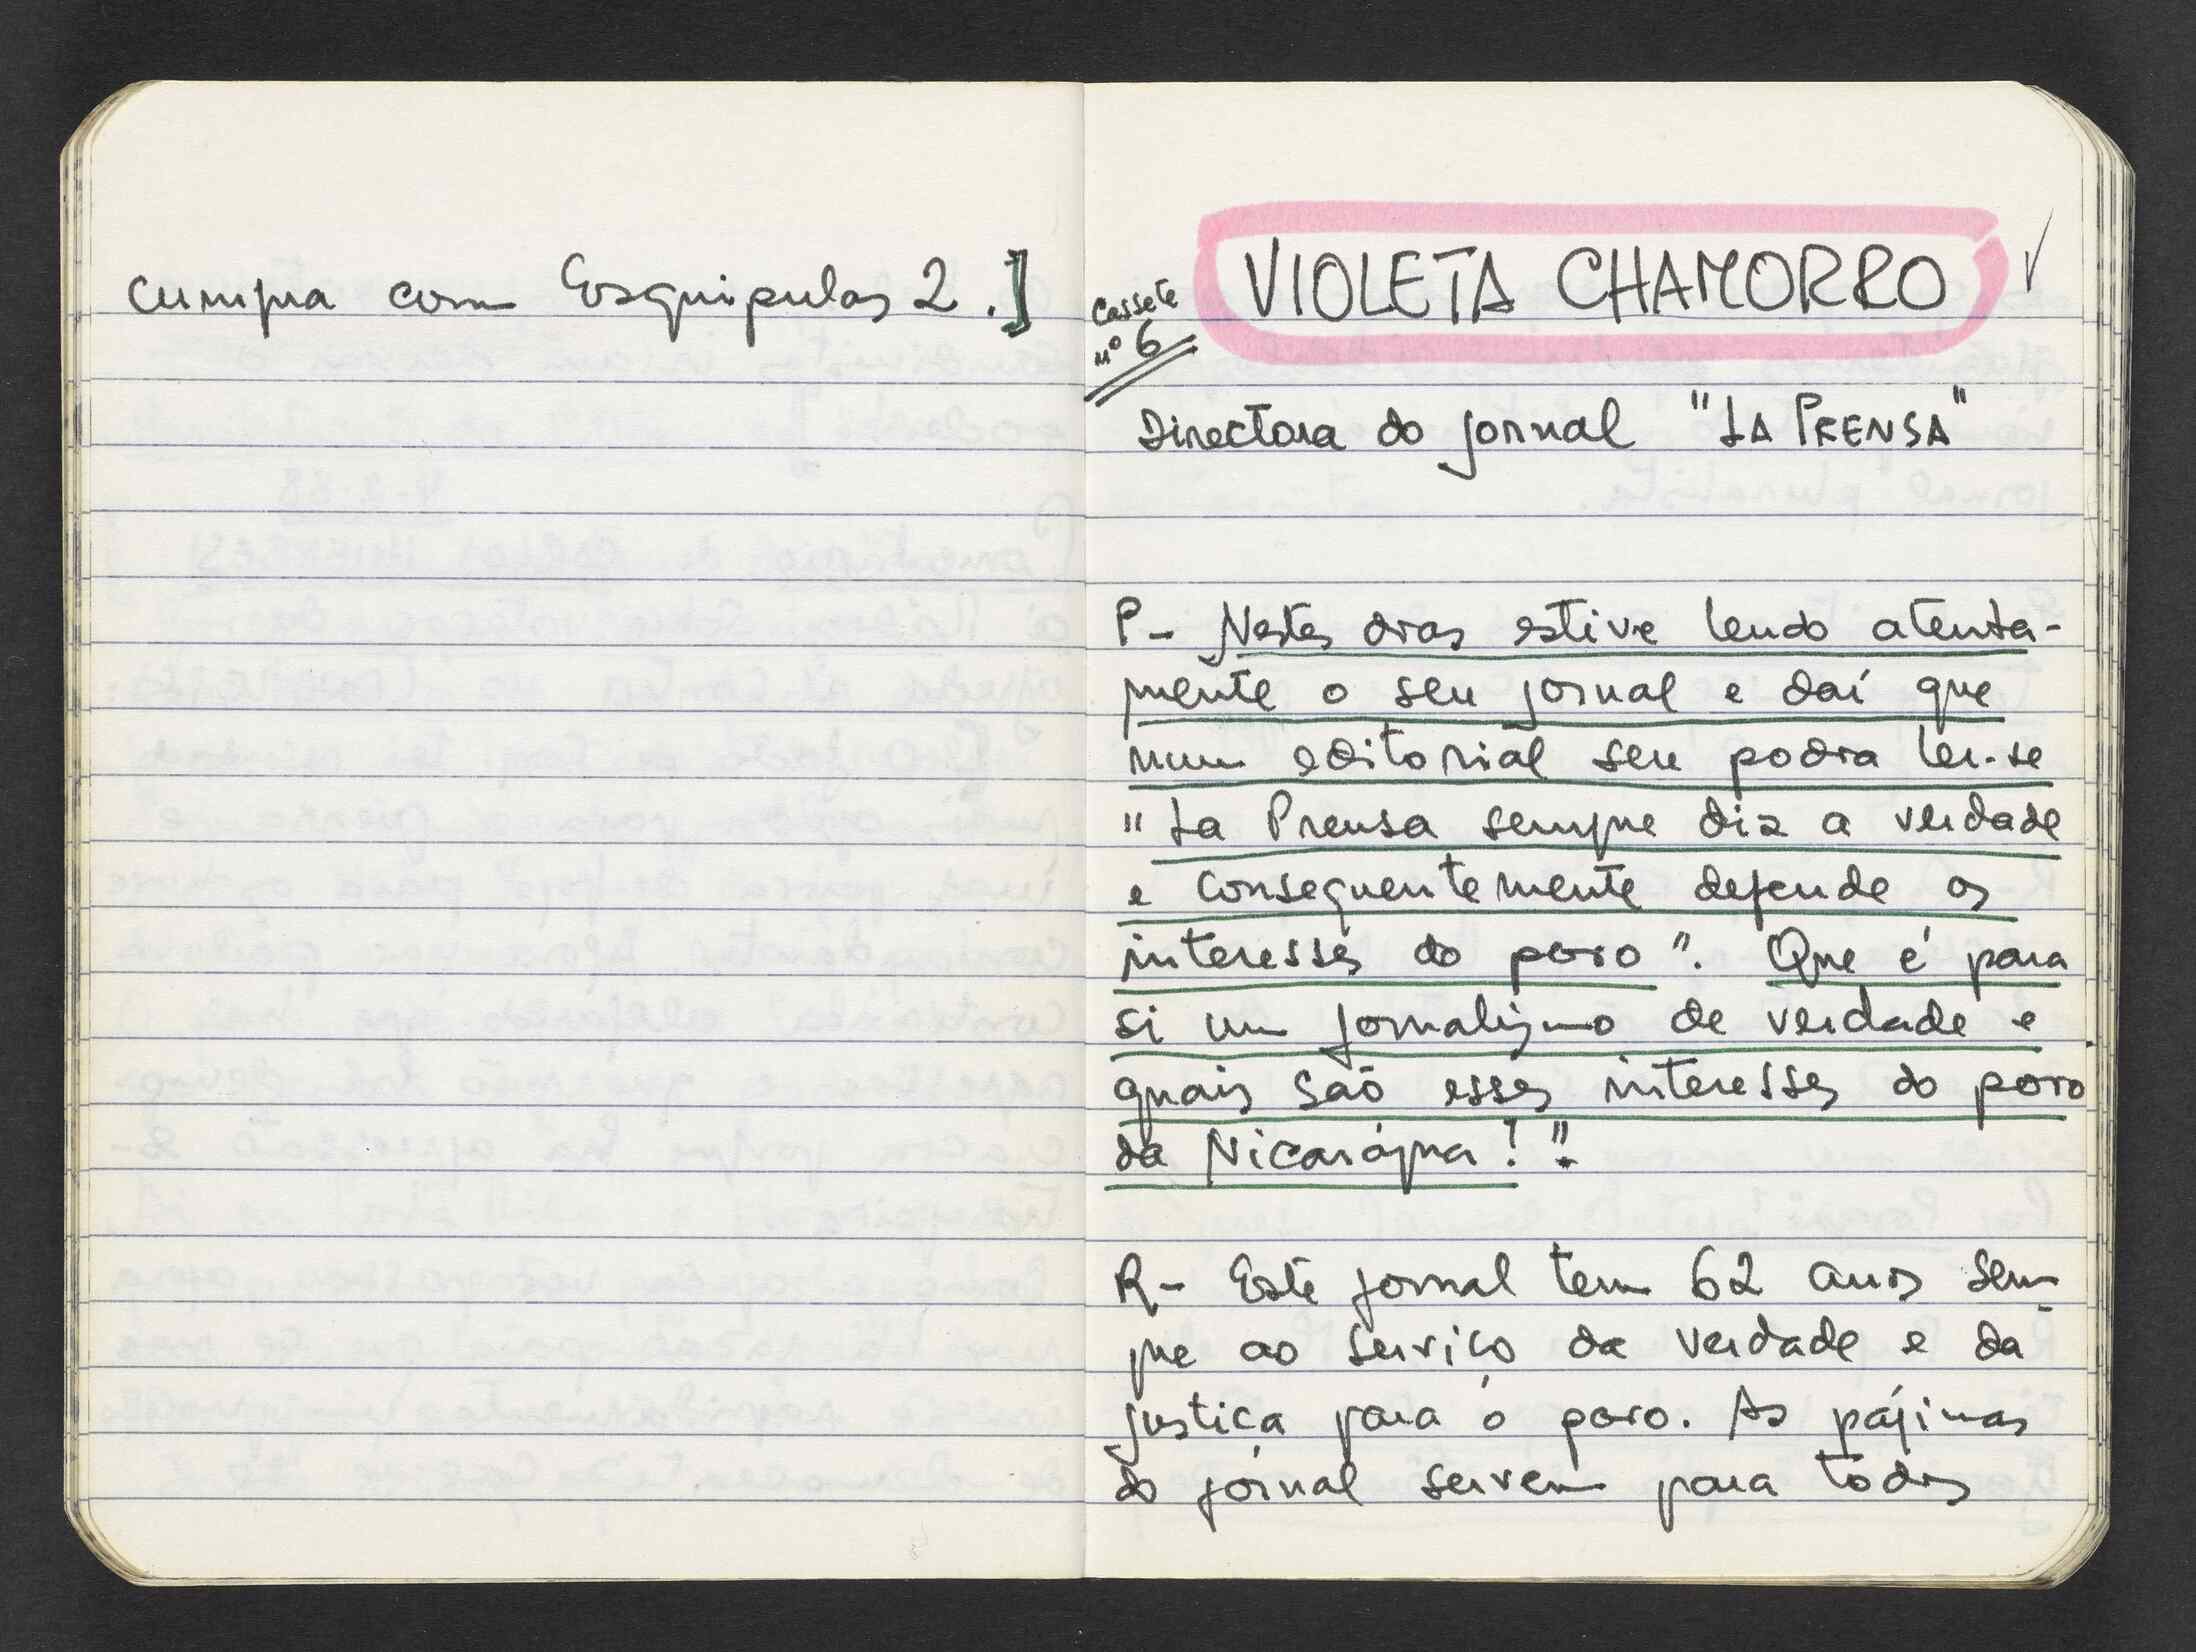 cumpra com Esquipulas 2.]
Cassete
nº 6
VIOLETA CHAMORRO
Directora do jornal "LA PRENSA"
P- Nestes dias estive lendo atenta-
mente o seu jornal e daí que
num editorial seu podia ler-se
"La Prensa sempre diz a verdade
e consequentemente defende os
interesses do povo". Que é para
si um jornalismo de verdade e
quais são esses interesses do povo
da Nicarágua?".
R- Este jornal tem 62 anos sem-
pre ao serviço da verdade e da
justiça para o povo. As páginas
do jornal servem para todos